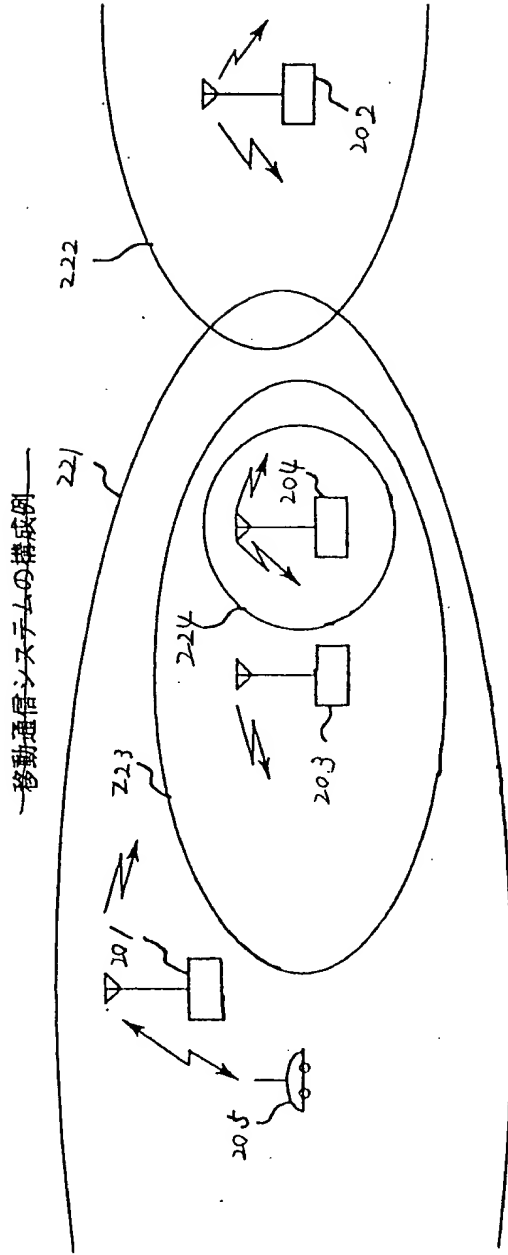 移動通信システムの構成例
221
222
223
224
201
202
203
204
205